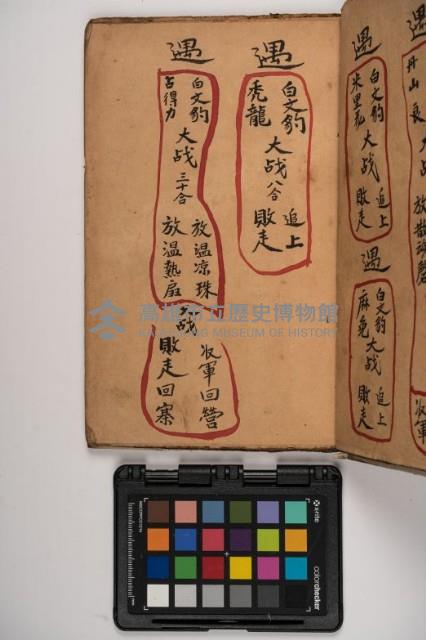 遇
白文豹
禿龍
大战
八合
追上
敗走
遇
白文豹
吉得力
大战
三十合
放溫凉珠
放溫熱扇
大战
收軍回營
敗走回寨
遇
白文豹
米里私
大战
追上
敗走
遇
白文豹
大战
追上
敗走
遇
丹山
收軍
高雄市立歷史博物館
KAOHSIUNG MUSEUM OF HISTORY
x-rite
colorchecker